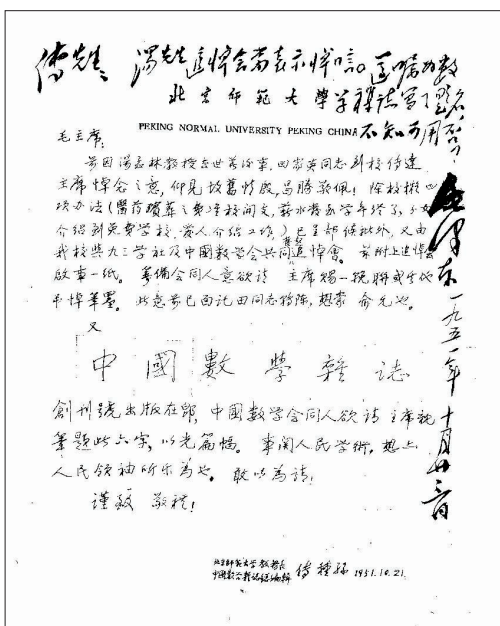 傅先生：湯先生追悼会当表示悼唁。遵嘱为數
北京师范大學 学雜誌写了題名，
PEKING NORMAL UNIVERSITY PEKING CHINA 不知可用否？
毛澤东
一九五一年十月廿三日
毛主席：
前因湯林教授去世善後事，田家英同志到校傳達
主席悼念之意，仰見故舊情殷，曷勝敬佩！除校擬四
項办法（醫药殯葬之費由校開支，薪水發至学年終了，子女
介紹到免費学校，愛人介紹工作，）已呈部候批外，又由
我校與九三学社及中國數学会共同追悼會。茲附上追悼会
啟事一纸。籌備会同人意欲請 主席賜一挽聯或其他
弔悼筆墨。此意前已面託田同志轉陳，想蒙 俞允也。
又
中國數學雜誌
創刊號出版在即 中國数学会同人欲請 主席親
筆題此六字，以光篇幅。事関人民学術，想亦
人民領袖所樂為也。敢以為請！
謹致 敬禮！
北京師範大学教務長
中國數学雜誌總編輯 傅種孫 1951.10.21.